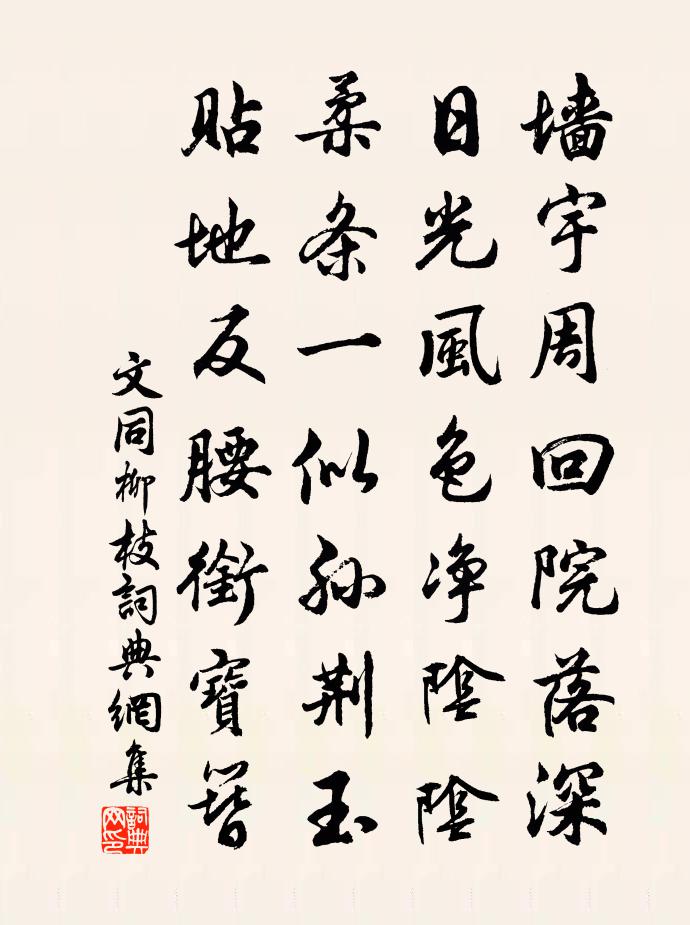 墙宇周回院落深
日光風色净陰陰
柔条一似孫荆玉
貼地反腰銜寶簪
文同柳枝詞典網集
詞典网印